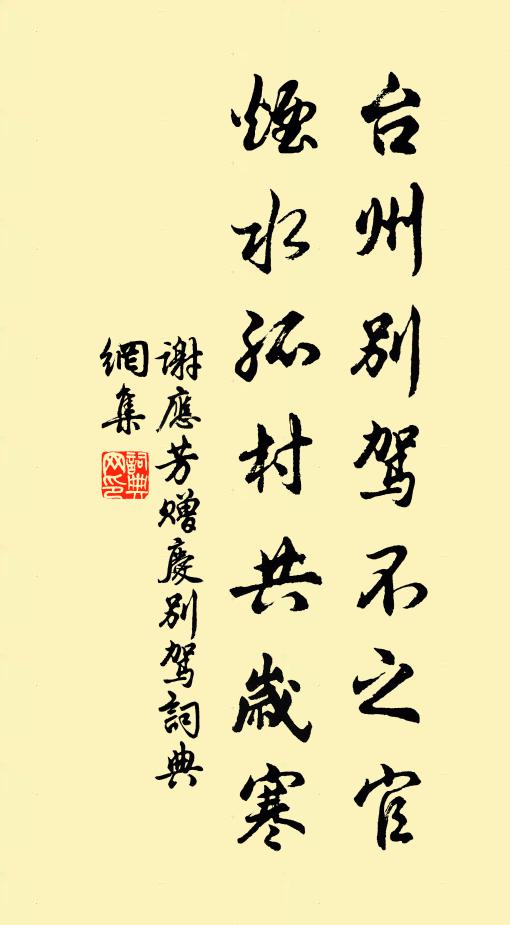 台州別駕不之官
煙水孤村共歲寒
謝應芳贈慶別駕詞典
網集
詞典網印